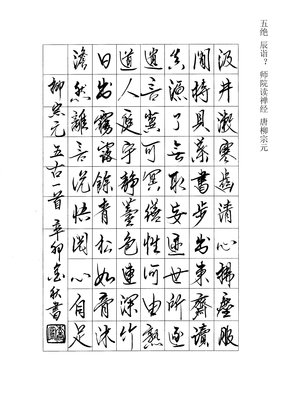 五绝 辰诣？ 师院读禅经 唐柳宗元
汲井漱寒齒清心拂塵服
閒持貝葉書步出東齋讀
真源了無取妄迹世所逐
遺言冀可冥繕性何由熟
道人庭宇靜苔色連深竹
日出霧露餘青松如膏沐
澹然離言说悟悦心自足
柳宗元五古一首 辛卯金秋書